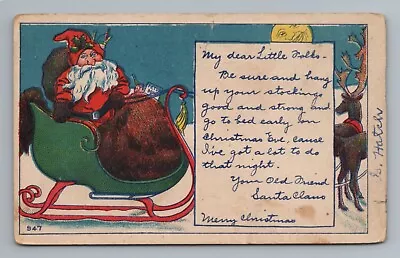 My dear Little Folks-
Be sure and hang
up your stockings
good and strong and
go to bed early on
Christmas Eve, cause
I've got a lot to do
that night.
Your Old Friend
Santa Claus
Merry Christmas
947
Hatch